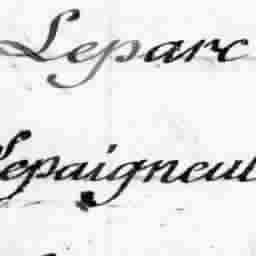 Leparc
Lepaigneul